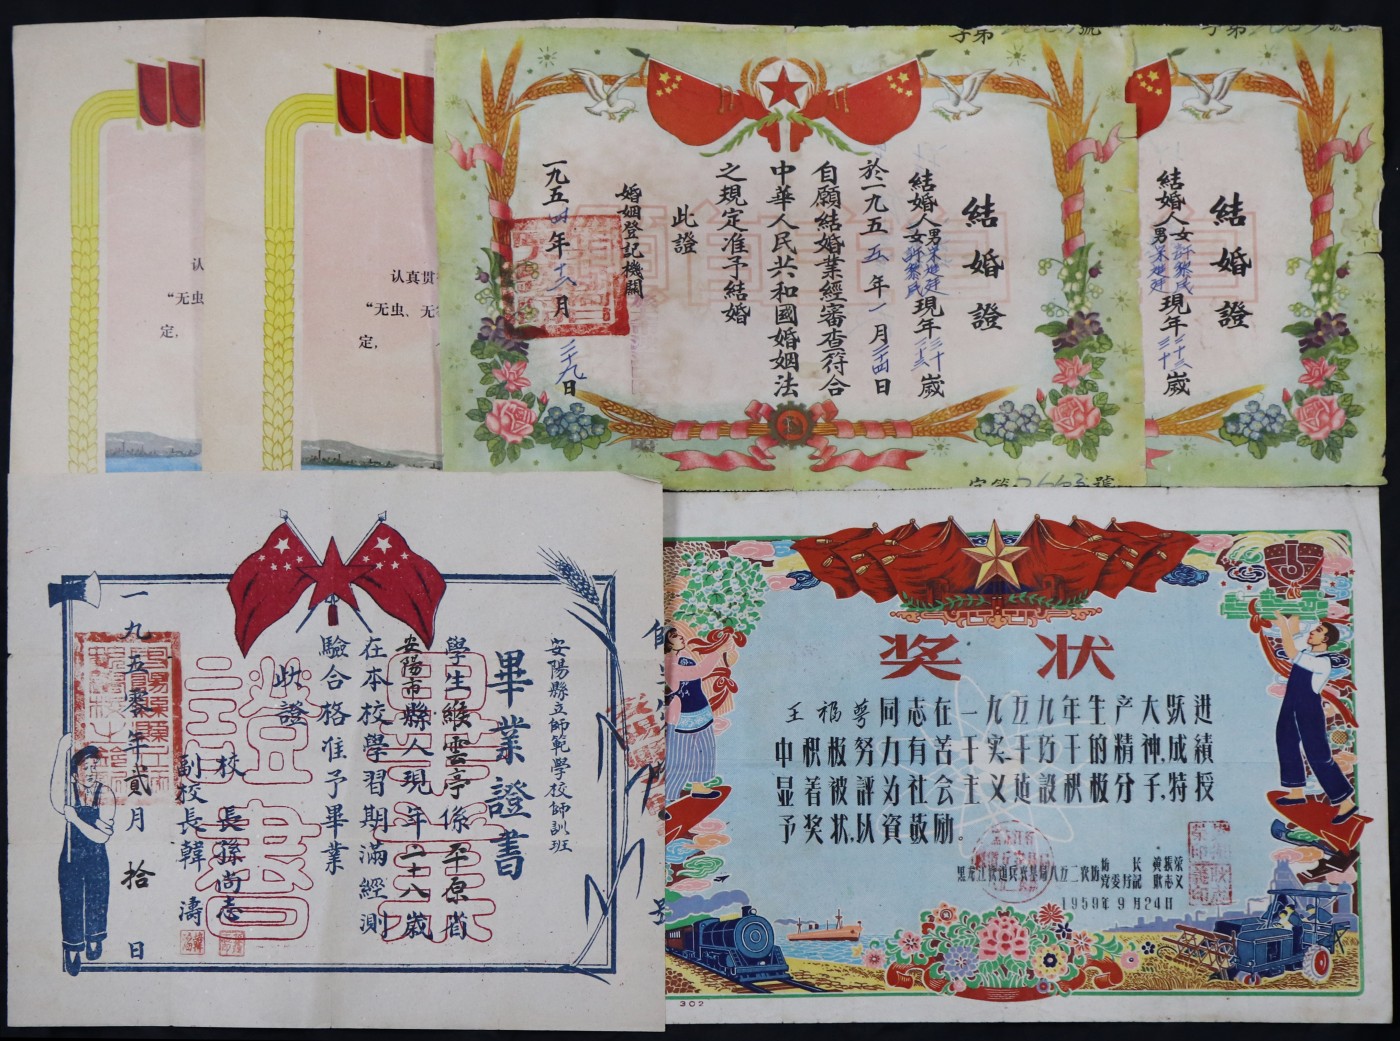 认
“无虫
定，
认真贯
“无虫、无
定，
字第
號
結婚證
結婚人男
女許黎民現年三十
歲
於一九五五年一月二十四日
自願結婚業經審查符合
中華人民共和國婚姻法
之規定准予結婚
此證
婚姻登記機關
一九五四年十二月二十九日
字第
號
結婚證
結婚人女許黎民
男
現年二十三
三十
歲
安陽縣立師範學校師訓班
畢業證書
學生緱雲亭係平原省
安陽市縣人現年二十八歲
在本校學習期滿經測
驗合格准予畢業
此證
校長孫尚志
副校長韓濤
一九五零年貳月拾日
畢業證書
奖状
王福琴同志在一九五九年生产大跃进
中积极努力有苦干实干巧干的精神,成绩
显著被評为社会主义建設积极分子,特授
予奖状,以資鼓励。
黑龙江铁道兵农垦局八五二农场
场长黄振荣
党委书記
志文
1959年9月24日
302